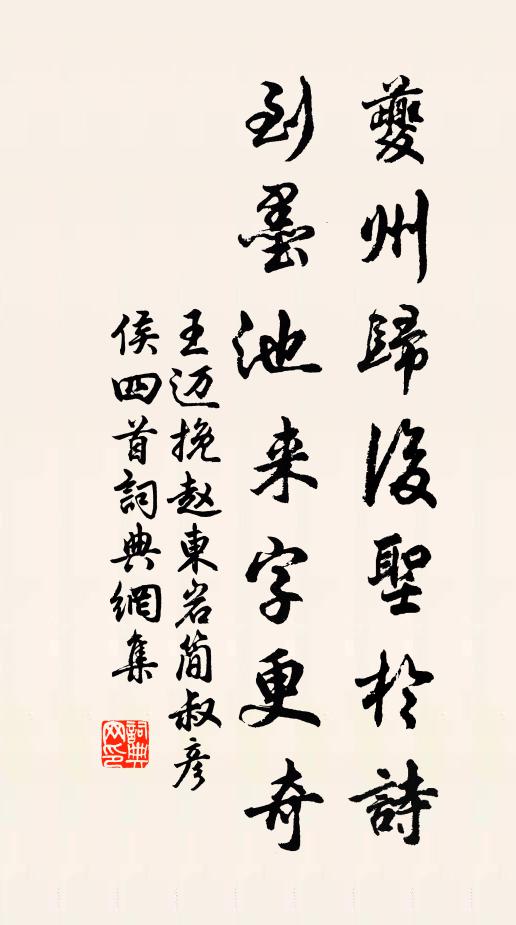 夔州歸後聖於詩
到墨池来字更奇
王迈挽赵東岩简叔彦
侯四首詞典網集
詞典网印